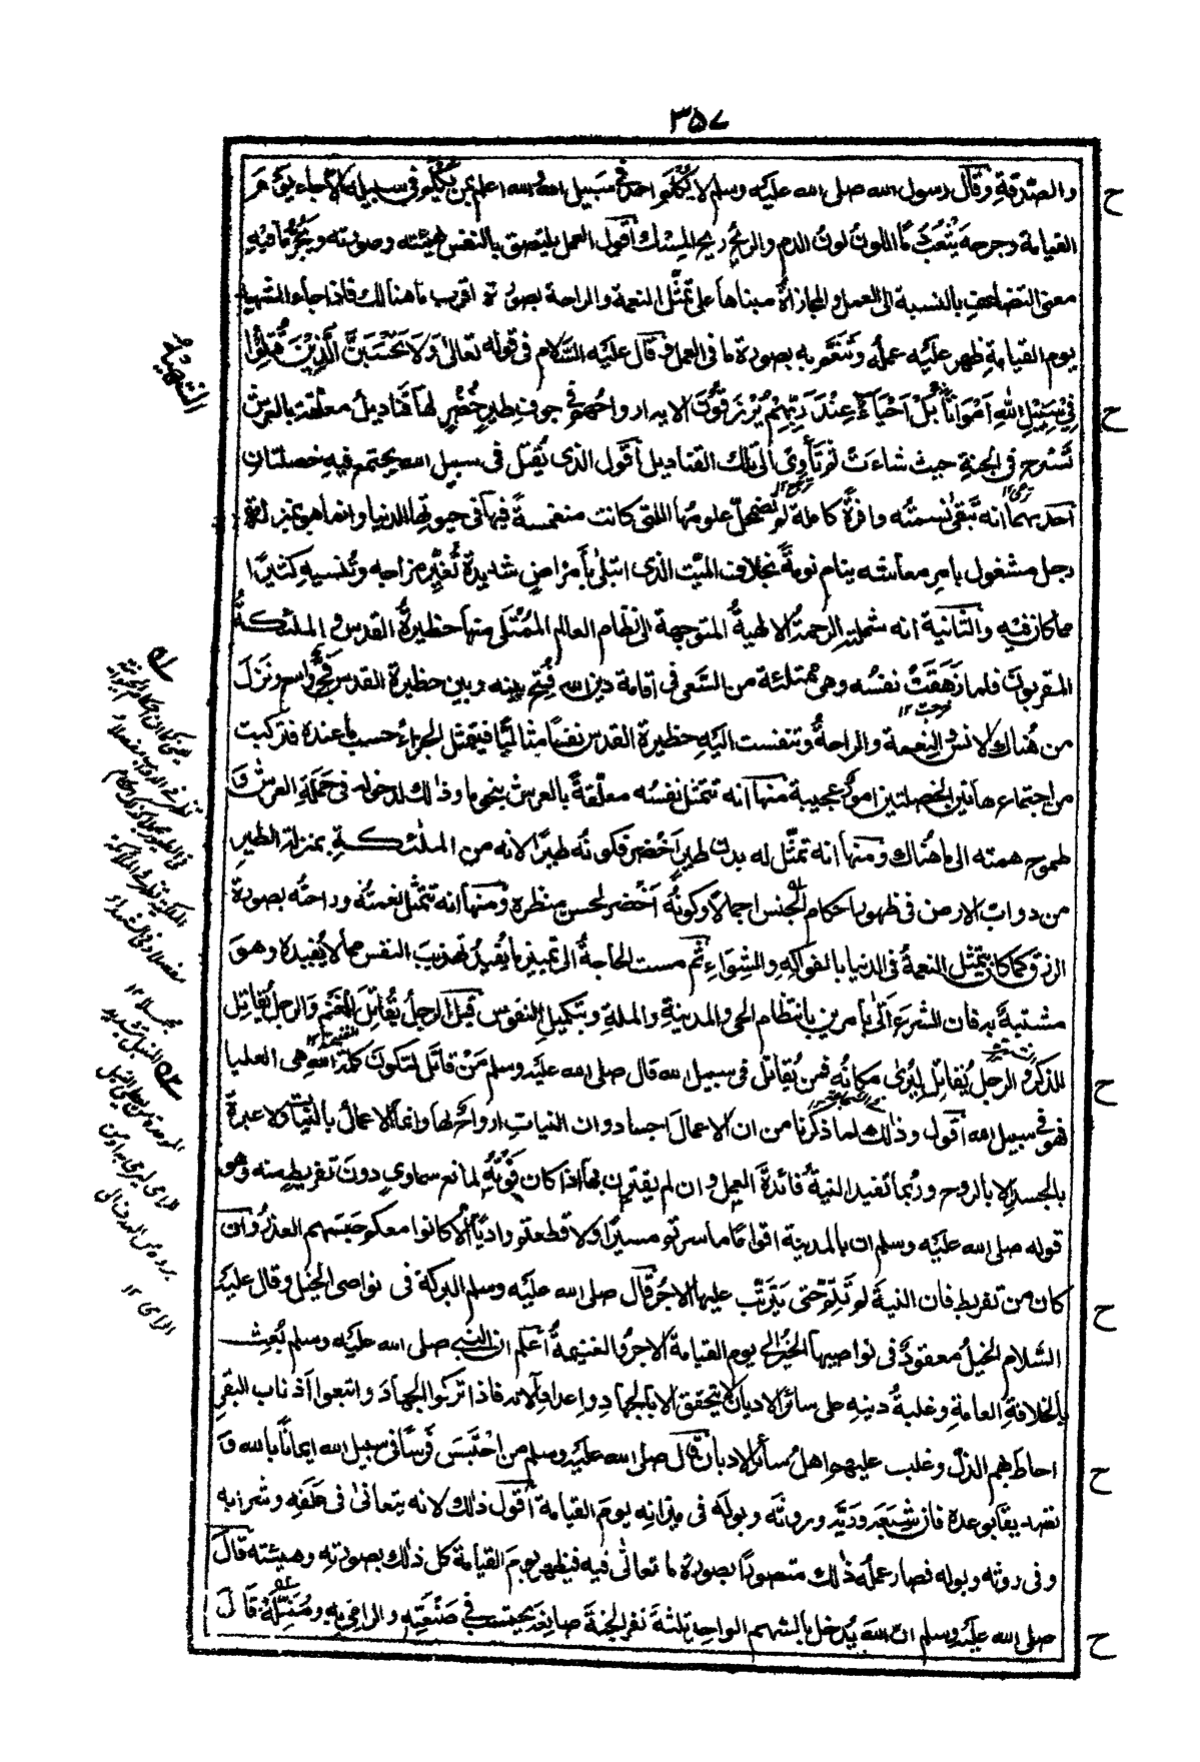 ٣٥٧
والصدقة وقال رسول الله صلى الله عليه وسلم لا يُكْلَمُ احد في سبيل الله والله اعلم بمن يُكْلَمُ في سبيله الا جاء يوم
القيامة وجرحه يَثْعَبُ دما اللون لون الدم والريح ريح المسك اقول العمل يلتصق بالنفس بهيئته وصورته ويجر ما فيه
معنى التضاعف بالنسبة الى العمل والمجازاة مبناها على تمثل النعمة والراحة بصورة اقرب ما هنالك فاذا جاء الشهيد
يوم القيامة ظهر عليه عمله وتنعم به بصورة ما في العمل وقال عليه السلام في قوله تعالى وَلَا تَحْسَبَنَّ الَّذِيْنَ قُتِلُوْا
فِيْ سَبِيْلِ اللهِ اَمْوَاتًا بَلْ اَحْيَاءٌ عِنْدَ رَبِّهِمْ يُرْزَقُوْنَ الاية ارواحهم في جوف طير خُضْرٍ لها قناديل معلقة بالعرش
تَسْرح في الجنة حيث شاءت ثم تَأوِي الى تلك القناديل اقول الذى يُقتل في سبيل الله يجتمع فيه خصلتان
احدىهما انه تبقى نسمته وافرة كاملة لم تضمحل علومها اللتى كانت منغمسة فيها في حيوتها الدنيا وانما هو بمنزلة
رجل مشغول بامر معاشه ينام نومة بخلاف الميت الذى ابتلى بأمراض شديدة تُغيّر مزاجه وتُنسيه كثيرًا
مما كان فيه والثانية انه شملته الرحمة الالهية المتوجهة الى نظام العالم المُمْتلى منها حظيرة القدس والملئكة
المقربون فلما زَهَقَتْ نفسه وهى ممتلئة من السَّعى في اقامة دين الله فُتح بينه وبين حظيرة القدس فجّ واسع ونزل
من هناك الانس والنعمة والراحة وتنفست اليه حظيرة القدس نفسًا مثاليًا فيتمثل الجزاء حسب ما عنده فتركبت
من اجتماع هاتين الخصلتين امور عجيبة منها انه تتمثل نفسه معلقة بالعرش بنحو ما وذلك لدخوله في حملة العرش و
طموح همته الى ما هناك ومنها انه تمثّل له بدن طير اخضر فكونه طيرًا لانه من الملئكة بمنزلة الطير
من دواب الارض في ظهور احكام الجنس اجمالًا وكونه اخضر لحسن منظره ومنها انه تتمثل نعمته وراحته بصورة
الرزق كما كان يتمثل النعمة في الدنيا بالفواكه والشِواء ثم مست الحاجة الى تمييز ما يُفيد تهذيب النفس مما لا يُفيده وهو
مشتبه به فان الشرع اتى بأمرين بانتظام الحى والمدينة والملة وبتكميل النفوس قيل الرجل يُقاتل للمغنم والرجل يُقاتل
للذكر والرجل يُقاتل ليُرى مكانه فمن يُقاتل في سبيل الله قال صلى الله عليه وسلم مَنْ قاتل لتكون كلمة الله هى العليا
فهو في سبيل الله اقول وذلك لما ذكرنا من ان الاعمال اجساد وان النيات ارواح لها وانما الاعمال بالنيات ولا عبرة
بالجسد الا بالروح وربما تُفيد النية فائدة العمل وان لم يقترن بها اذا كان فوته لمانع سماوى دون تفريط منه وهو
قوله صلى الله عليه وسلم ان بالمدينة اقواما ما سرتم مسيرًا ولا قطعتم واديًا الا كانوا معكم حبسهم العذر وان
كان من تفريط فان النية لم تتم حتى يترتب عليها الاجر قال صلى الله عليه وسلم البركة في نواصى الخيل وقال عليه
السلام الخيل معقود في نواصيها الخير الى يوم القيامة الاجر والغنيمة اعلم ان النبي صلى الله عليه وسلم بُعِث
بالخلافة العامة وغلبة دينه على سائر الاديان لا يتحقق الا بالجهاد واعداد الاته فاذا تركوا الجهاد واتبعوا اذناب البقر
احاط بهم الذل وغلب عليهم اهل سائر الاديان قال صلى الله عليه وسلم من احْتَبَسَ فرسًا في سبيل الله ايمانا بالله و
تصديقا بوعده فان شِبَعه وريَّه وروثه وبوله في ميزانه يوم القيامة اقول ذلك لانه يتعانى في علفه وشرابه
وفى روثه وبوله فصار عمله ذلك متصورًا بصورة ما تعانى فيه فيظهر يوم القيامة كل ذلك بصورته وهيئته قال
صلى الله عليه وسلم ان الله يُدخل بالسهم الواحد ثلثة نفر الجنة صانعه يحتسب في صَنْعَتِه والرامى به ومُنَبِّلَه قال
ح
ح
ح
ح
ح
ح
الشهيد